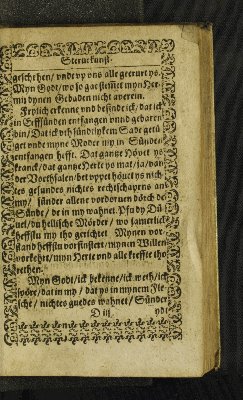 Steruekunst.
geschehen / vnde vp vns alle geeruet ys.
Myn Godt / wo so gar stimmet myn Her=
mit dynen Gebaden nicht auerein.
Frylich erkenne vnd befinde ick / dat ick
in Sünden entfangen vnnd gebaren
bin / Dat ick vth sündtlykem Sade getü=
get vnde myne Moder my in Sünden
entfangen hefft. Dat gantze Höuet ys
kranck / dat gantze Herte ys mat / ja / van
der Voethsalen / bet vppet höuet ys nich=
tes gesundes nichtes rechtschapens an
my / sünder allent vordoruen dörch de
Sünde / de in my wahnet. Pfu dy Dü=
uel / du hellische Mörder / wo jamerlick
heffstu my tho gerichtet Mynen vor=
stand heffstu vorfinstert / mynen Willen
vorkehret / myn Herte vnd alle kreffte tho=
rethen.
Myn Godt / ick bekenne / ick weth / ick
spöre / dat in my / dat ys in mynem Fle=
sche / nichtes guedes wahnet / Sünder
D iiij
ydt